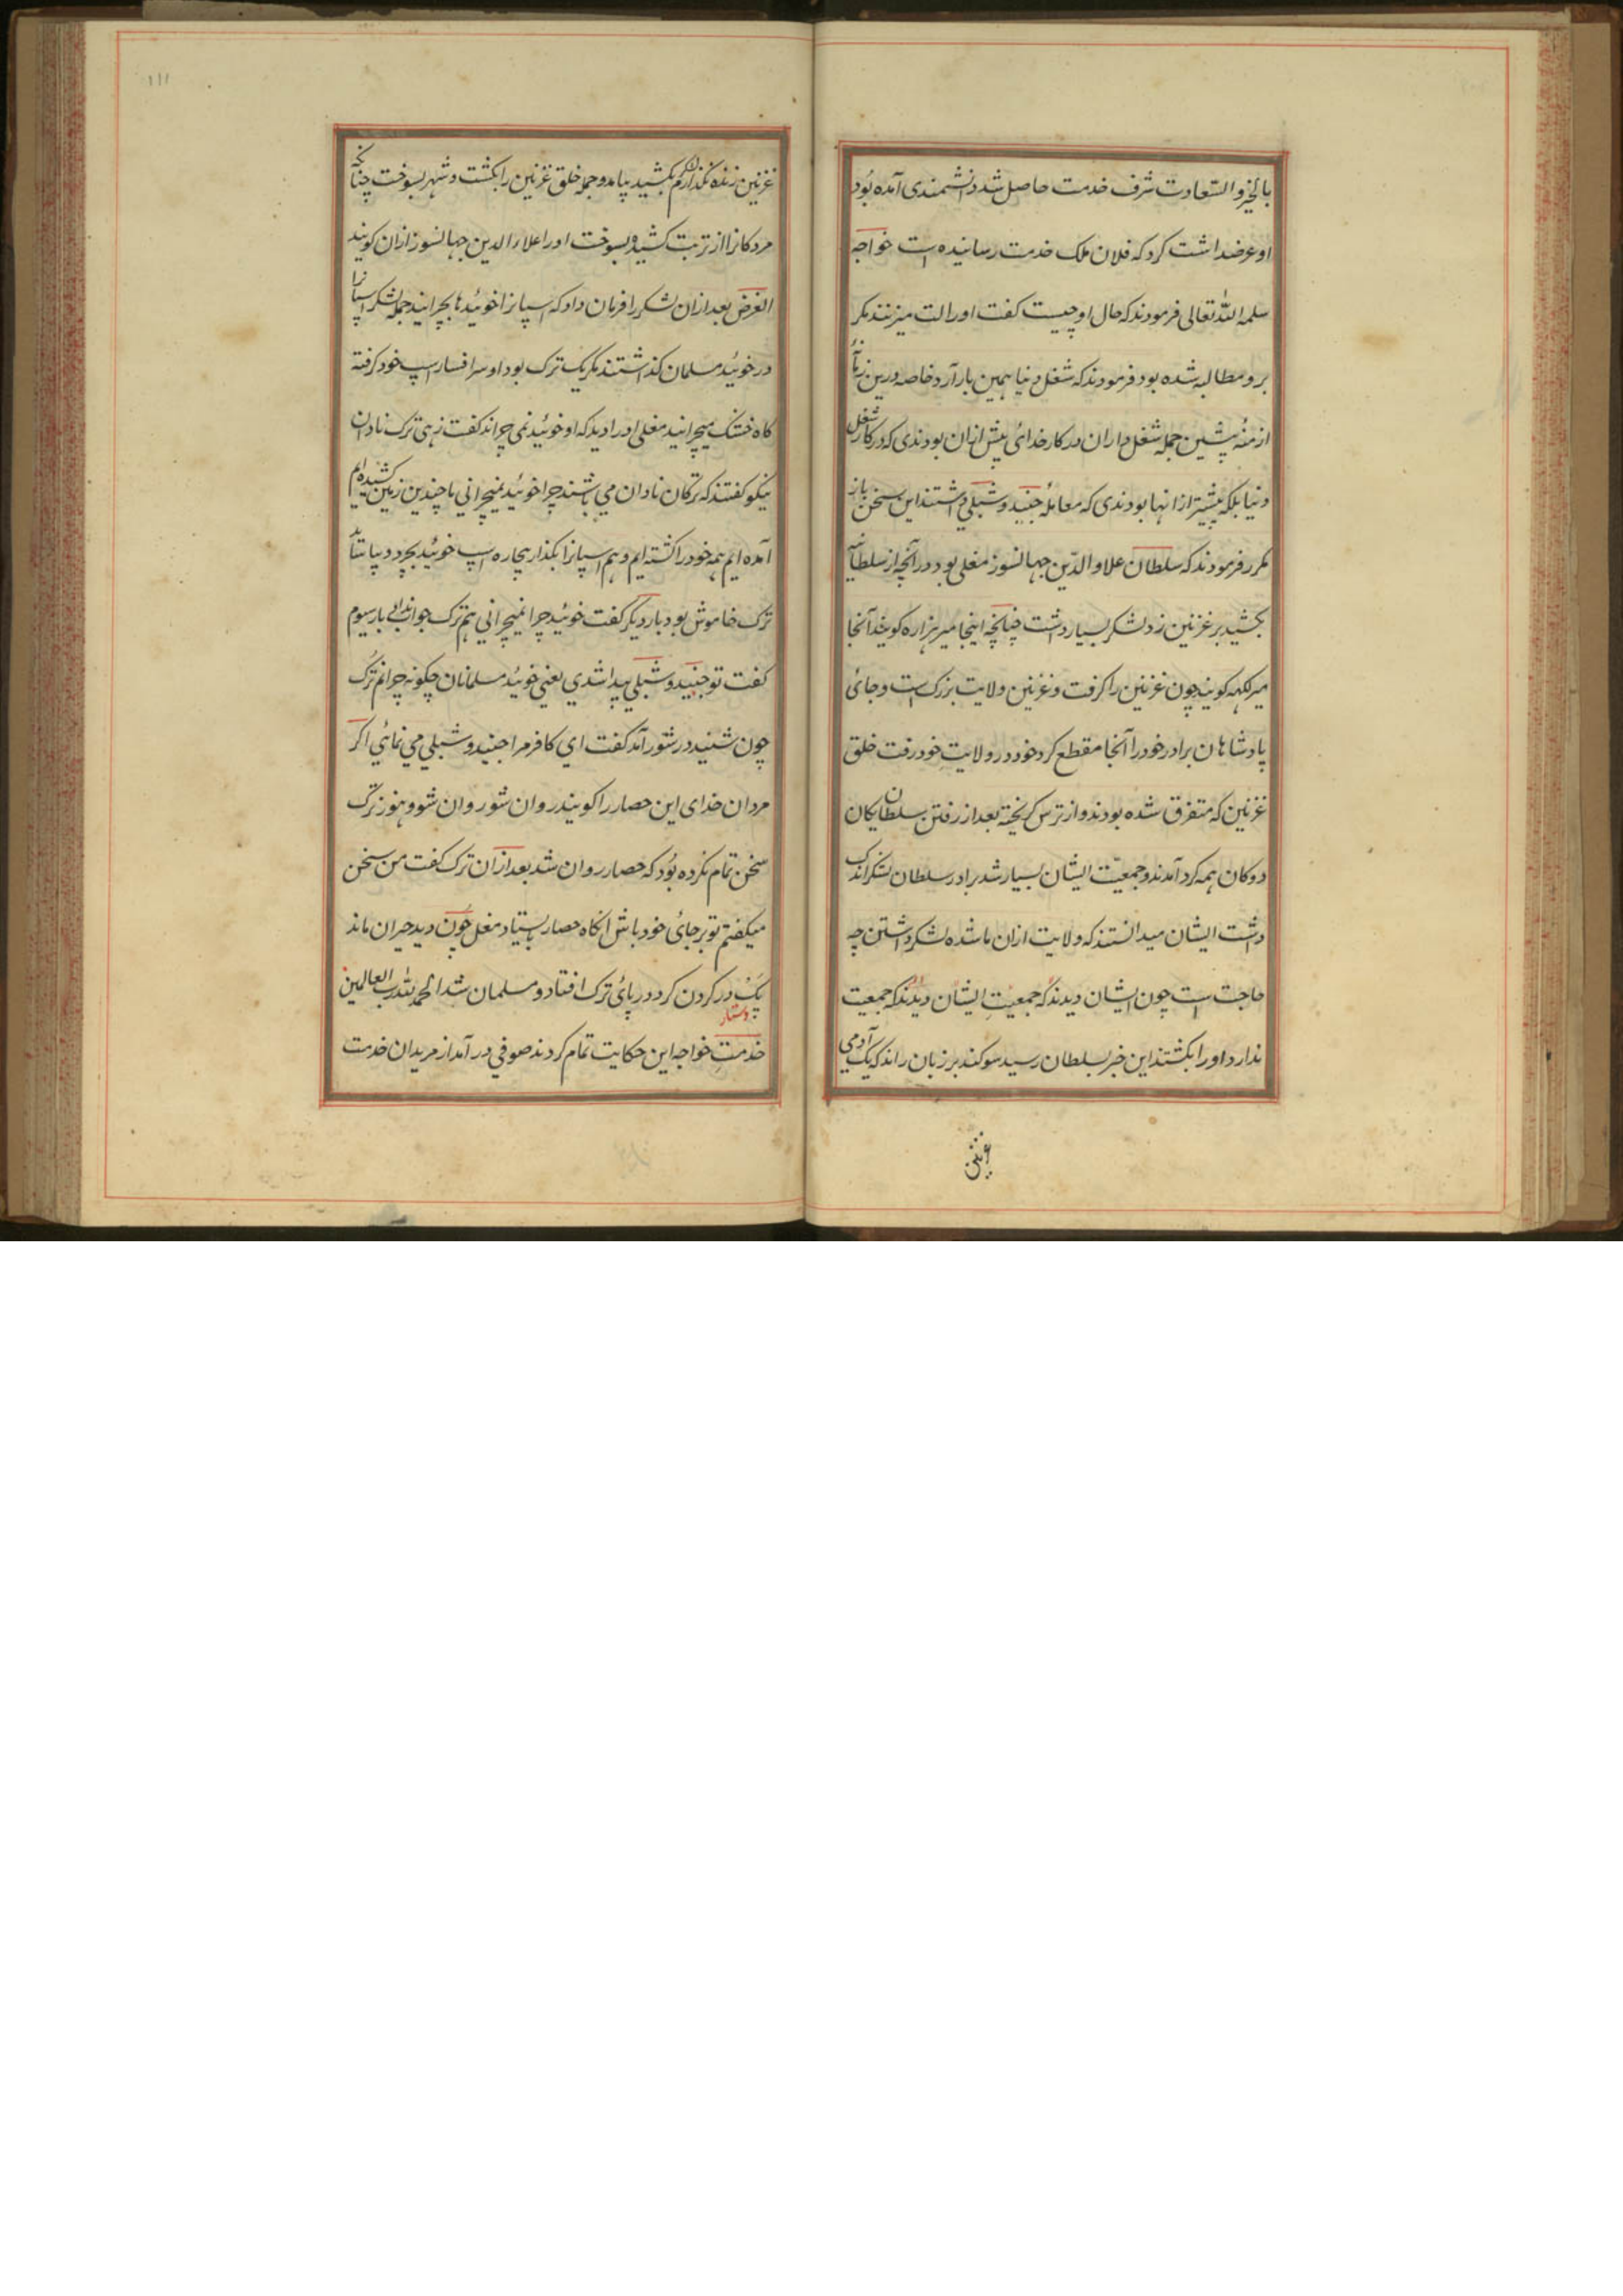 بالخیر و السّعادت شرف خدمت حاصل شد دانشمندی آمده بُود
او عرضداشت کرد که فلان ملک خدمت رسانیده است خواجه
سلمه اللّٰه تعالی فرمودند که حال او چیست کفت اورا لت میزنند مکر
برو مطالبه شده بود فرمودند که شغل دنیا همین بار آرد خاصه درین زمانه
ازمنهٔ پیشین جمله شغل داران در کار خدائ بیش ازان بودندی که در کار شغل
دنیا بلکه پیشتر از انها بودندی که معاملهٔ جنید و شبلی داشتند این سخن باز
مکرر فرمودند که سلطان علاو الدّین جهانسوز مغلی بود در آنچه از سلطانیه
بکشید بر غزنین زد لشکر بسیار داشت چنانچه اینجا میر هزاره کویند آنجا
میر لکهه کویند چون غزنین را کرفت و غزنین ولایت بزرک است و جائ
پادشاهان برادر خود را آنجا مقطع کرد خود در ولایتِ خود رفت خلق
غزنین که متفرق شده بودند و از ترس کریخته بعد از رفتن سلطان یکان
دوکان همه کرد آمدند و جمعیّت ایشان بسیار شد برادر سلطان لشکر اندک
داشت ایشان میدانستند که ولایت ازان ما شده لشکر داشتن چه
حاجت است چون ایشان دیدند که جمعیّتِ ایشان دیدند که جمعیت
ندارد او را بکشتند این خبر بسلطان رسید سوکند بر زبان راند که یک آدمی
غزنین
۱۱۱
غزنین زنده نکذارم بکشید بیامد و جمله خلق غزنین را بکشت و شهر بسوخت چنانکه
مردکانرا از تربت کشید و بسوخت اورا علاء الدین جهانسوز ازان کویند
الغرض بعد ازان لشکر را فرمان داد که اسپانرا خوئید بچرانید جمله لشکر اسپانرا
در خوئید مسلمان کذاشتند مکر یک ترک بود او سر افسار اسپ خود کرفته
کاه خشک میچرانید مغلی اورا دید که او خوئید نمی چراند کفت زهی ترک نادان
نیکو کفتند که ترکان نادان می باشند چرا خوئید نمیچرانی ما چندین زمین کشیده ایم
آمده ایم همه خود را کشته ایم و هم اسپانرا بکذار بیچاره اسپ خوئید بچرد و بیاساید
ترک خاموش بود بار دیکر کفت خوئید چرا نمیچرانی هم ترک جواب نداد بار سیوم
کفت تو جنید و شبلی پیدا شدی یعنی خوئید مسلمانان چکونه چرانم ترک
چون شنید در شور آمد کفت ای کافر مرا جنید و شبلی می نمائی اکر
مردان خدای این حصار را کویند روان شو روان شود هنوز ترک
سخن تمام نکرده بُود که حصار روان شد بعد ازان ترک کفت من سخن
میکفتم تو بر جائ خود باش انکاه حصار بایستاد مغل چون دید حیران ماند
دستار
در کردن کرد در پائ ترک افتاد و مسلمان شد الحمد للّٰه رب العالمین
خدمتِ خواجه این حکایت تمام کردند صوفی در آمد از مریدان خدمت